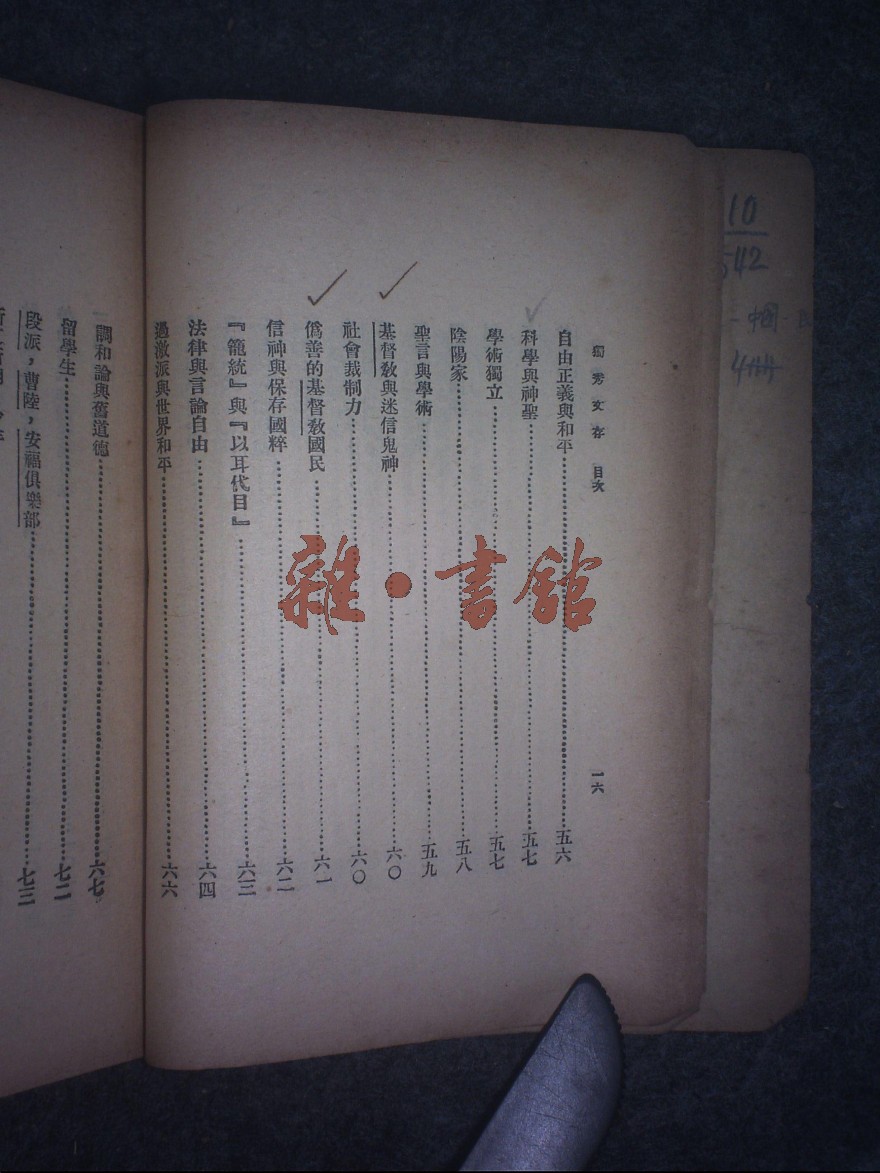 獨秀文存 目次 一六
自由正義與和平 五六
科學與神聖 五七
學術獨立 五七
陰陽家 五八
聖言與學術 五九
基督教與迷信鬼神 六〇
社會裁制力 六〇
偽善的基督教國民 六一
信神與保存國粹 六二
『籠統』與『以耳代目』 六三
法律與言論自由 六四
過激派與世界和平 六六
調和論與舊道德 六七
留學生 七二
段派，曹陸，安福俱樂部 七三
雜·書館
10
542
中國
4冊